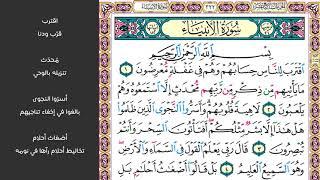 سُورَةُ الأَنبِيَاءِ
بِسْمِ اللَّهِ الرَّحْمَٰنِ الرَّحِيمِ
اقْتَرَبَ لِلنَّاسِ حِسَابُهُمْ وَهُمْ فِي غَفْلَةٍ مُّعْرِضُونَ ١
مَا يَأْتِيهِم مِّن ذِكْرٍ مِّن رَّبِّهِم مُّحْدَثٍ إِلَّا اسْتَمَعُوهُ وَهُمْ
يَلْعَبُونَ ٢ لَاهِيَةً قُلُوبُهُمْ وَأَسَرُّوا النَّجْوَى الَّذِينَ ظَلَمُوا
هَلْ هَٰذَا إِلَّا بَشَرٌ مِّثْلُكُمْ أَفَتَأْتُونَ السِّحْرَ وَأَنتُمْ
تُبْصِرُونَ ٣ قَالَ رَبِّي يَعْلَمُ الْقَوْلَ فِي السَّمَاءِ وَالْأَرْضِ
وَهُوَ السَّمِيعُ الْعَلِيمُ ٤ بَلْ قَالُوا أَضْغَاثُ أَحْلَامٍ بَلِ
اقترب
قَرُب ودنا
مُحْدَث
تنزيله بالوحي
أسَرّوا النجوى
بالغوا في إخفاء تناجيهم
أضغاث أحلام
تخاليط أحلام رآها في نومه